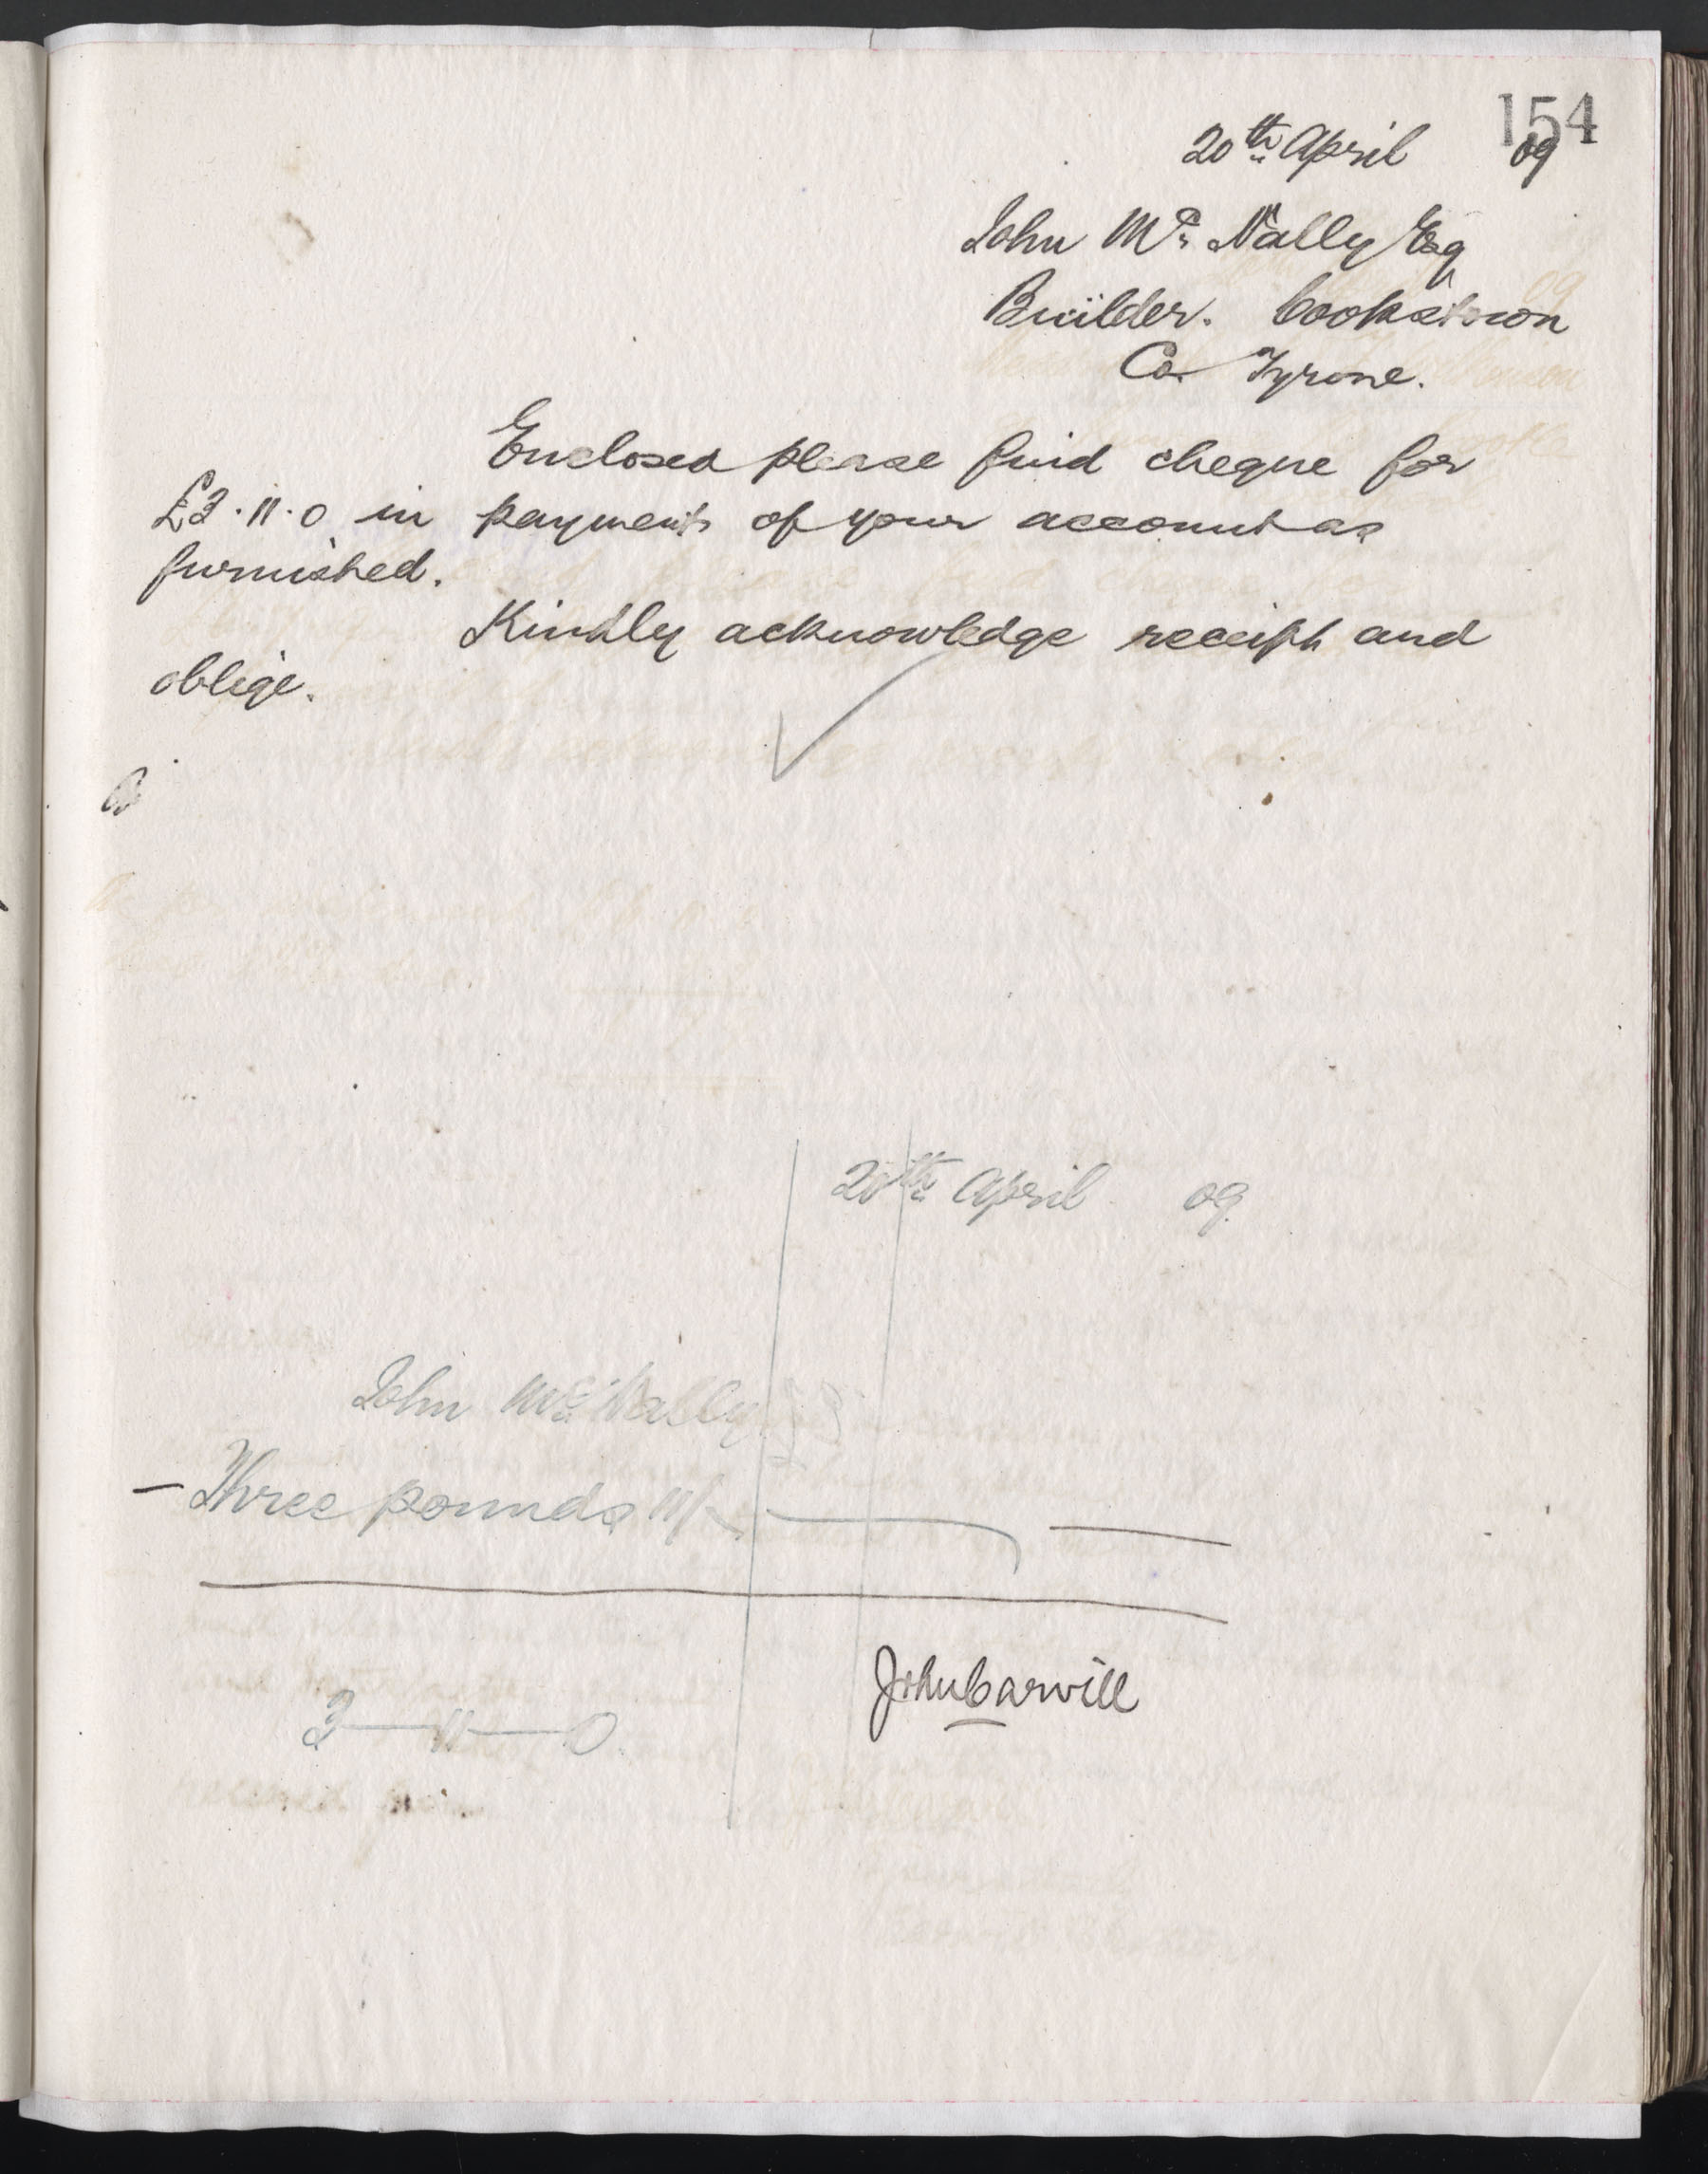 154
20th April 09
John Mc Nally Esq
Builder. Cookstown
Co. Tyrone.
Enclosed please find cheque for
£3.11.0 in payment of your account as
furnished.
Kindly acknowledge receipt and
oblige.
20th April 09
John Mc Nally
Three pounds 11/-
John Carvill
3—11—0